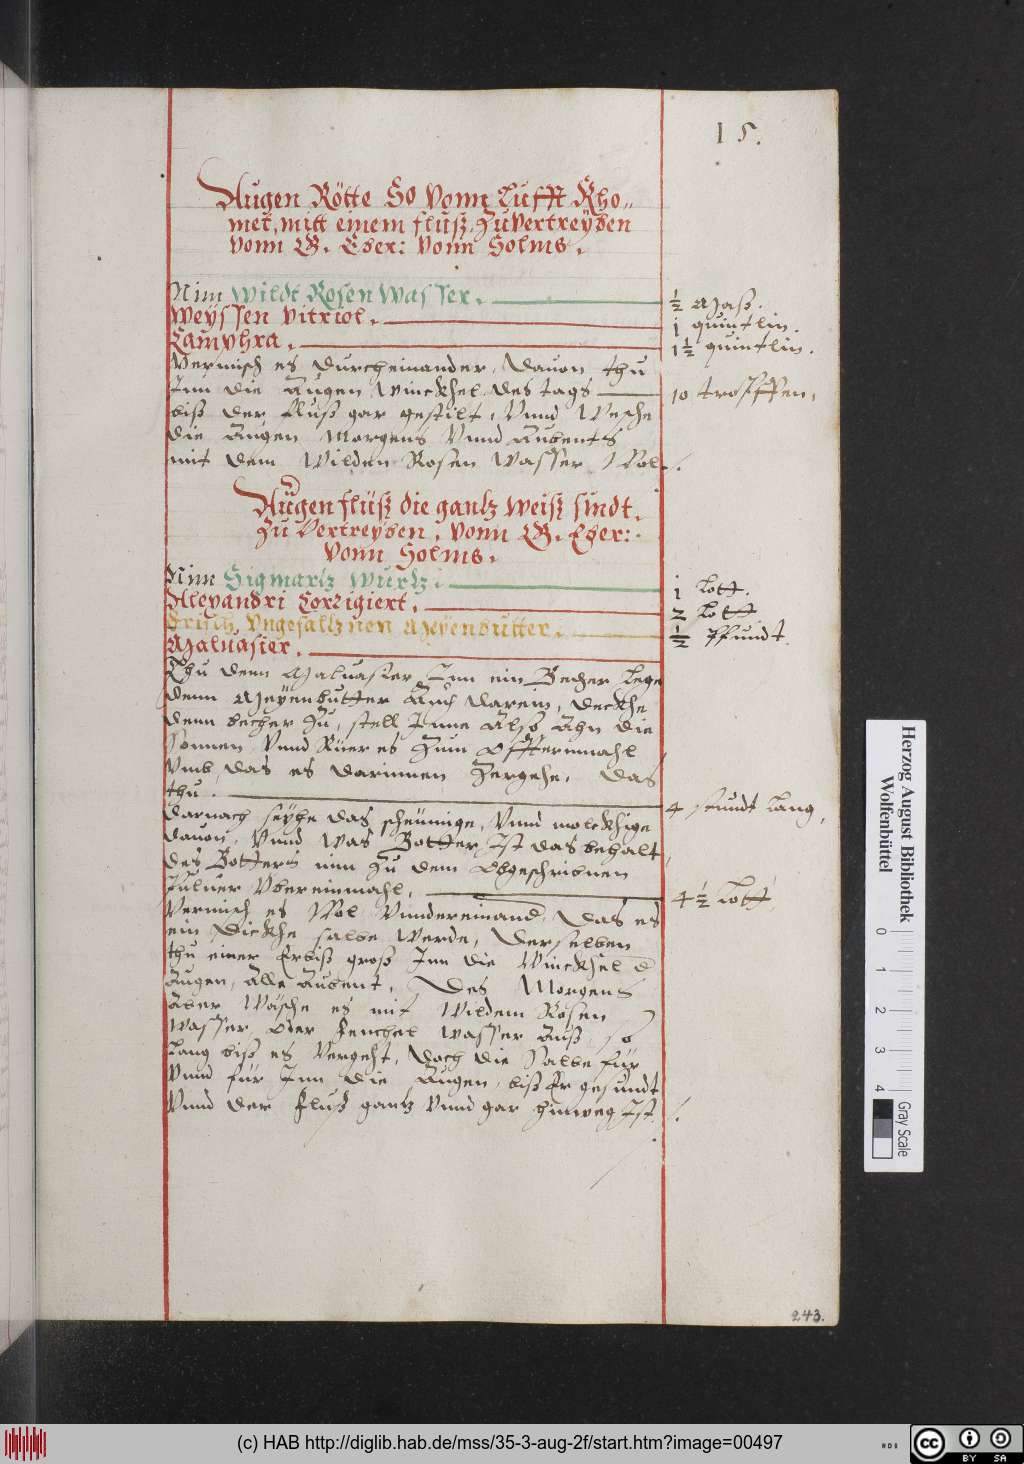 15.
Augen Rötte So vonn Lufft Kho„
met, mitt einem fluß, zu vertreyben
vonn G. Eber: vonn Solms.
Nim Wildt Rosen Wasser. ½ Maß.
Weyssen vitriol. 1 quintlin.
Camphra. 1½ quintlin.
Vermisch es durcheinander, dauon thu
Inn die Augen Winckhel des tags 10 tropffen,
biß der fluß gar gestilt, Vnnd Wesche
die Augen Morgens Vnnd Aubents
mit dem Wilden Rosen Wasser Wol.
Augen flüß die gantz weiß sindt.
zu Vertreyben, vonn G. Eber:
vonn Solms.
Nim Sigmartz wurtz. 1 Lott.
Alexandri Corrigiert. 2 Lott
frisch, Vngesaltznen Meyenbutter. ½ Pfundt.
Maluasier.
Thu denn Maluasier Inn ein Becher lege
denn Meyenbutter Auch darein, deckhe
denn becher zu, stell Inne Also Ahn die
Sonnen Vnnd Rüer es zum offternmahl
Vmb, das es darinnen zergehe, das
thu. 4 stundt lang,
darnach seyhe das scheumige, Vnnd molckhige
dauon, Vnnd was Botter Ist das behalt,
des Botters nim zu dem obgeschribnen
Puluer Vbereinmahl, 4½ Lott,
Vermisch es Wol Vnndereinand, das es
ein dickhe salbe Werde, derselben
thu einer Erbiß groß Inn die Winckhel d
Augen, Alle Aubent, des Morgens
Aber Wäsche es mit Wildem Rosen
Wasser oder fenchel Wasser auß, so
lang biß es Vergeht, doch die Salbe für
Vnnd für Inn die Augen, biß Er gesundt
Vnnd der fluß gantz Vnnd gar hinweg Ist.
243.
Herzog August Bibliothek
Wolfenbüttel
0 1 2 3 4
Gray Scale
(c) HAB http://diglib.hab.de/mss/35-3-aug-2f/start.htm?image=00497
cc BY SA